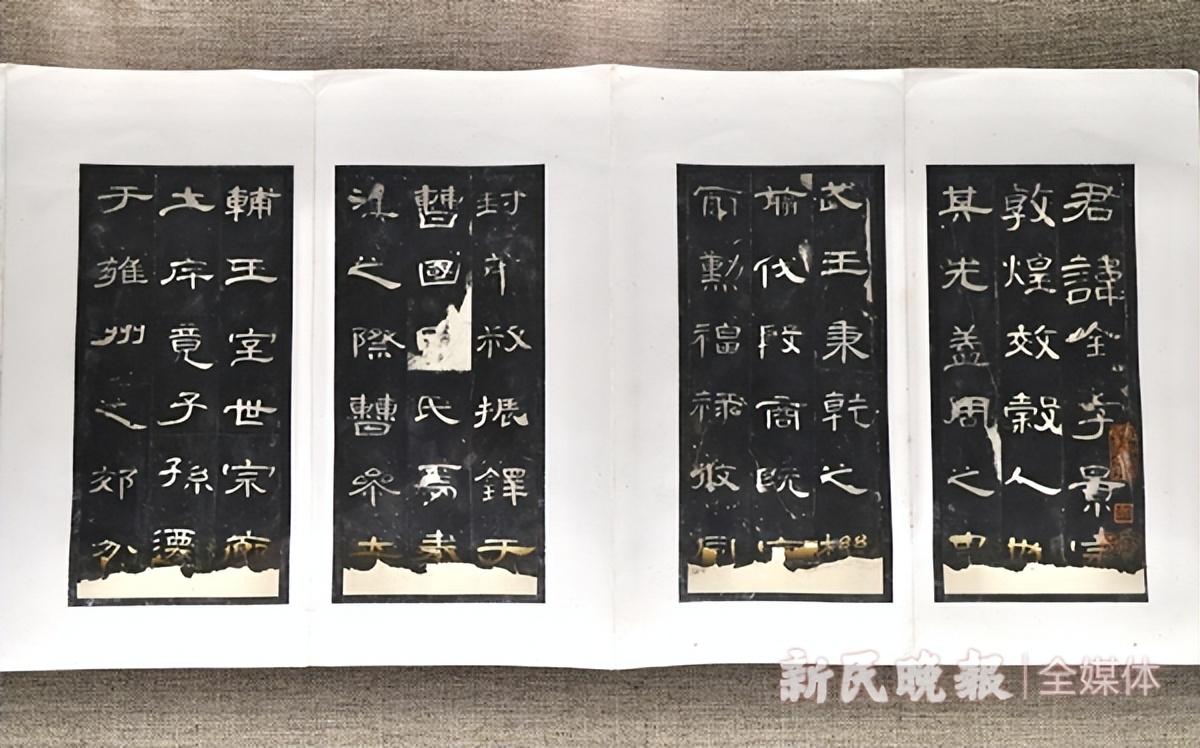 君諱全字景完
敦煌效穀人也
其先蓋周之胄
武王秉乾之機
翦伐殷商既定
爾勳福祿攸同
封弟叔振鐸于
曹國因氏焉秦
漢之際曹參夾
輔王室世宗廓
土斥竟子孫遷
于雍州之郊分
新民晚报|全媒体